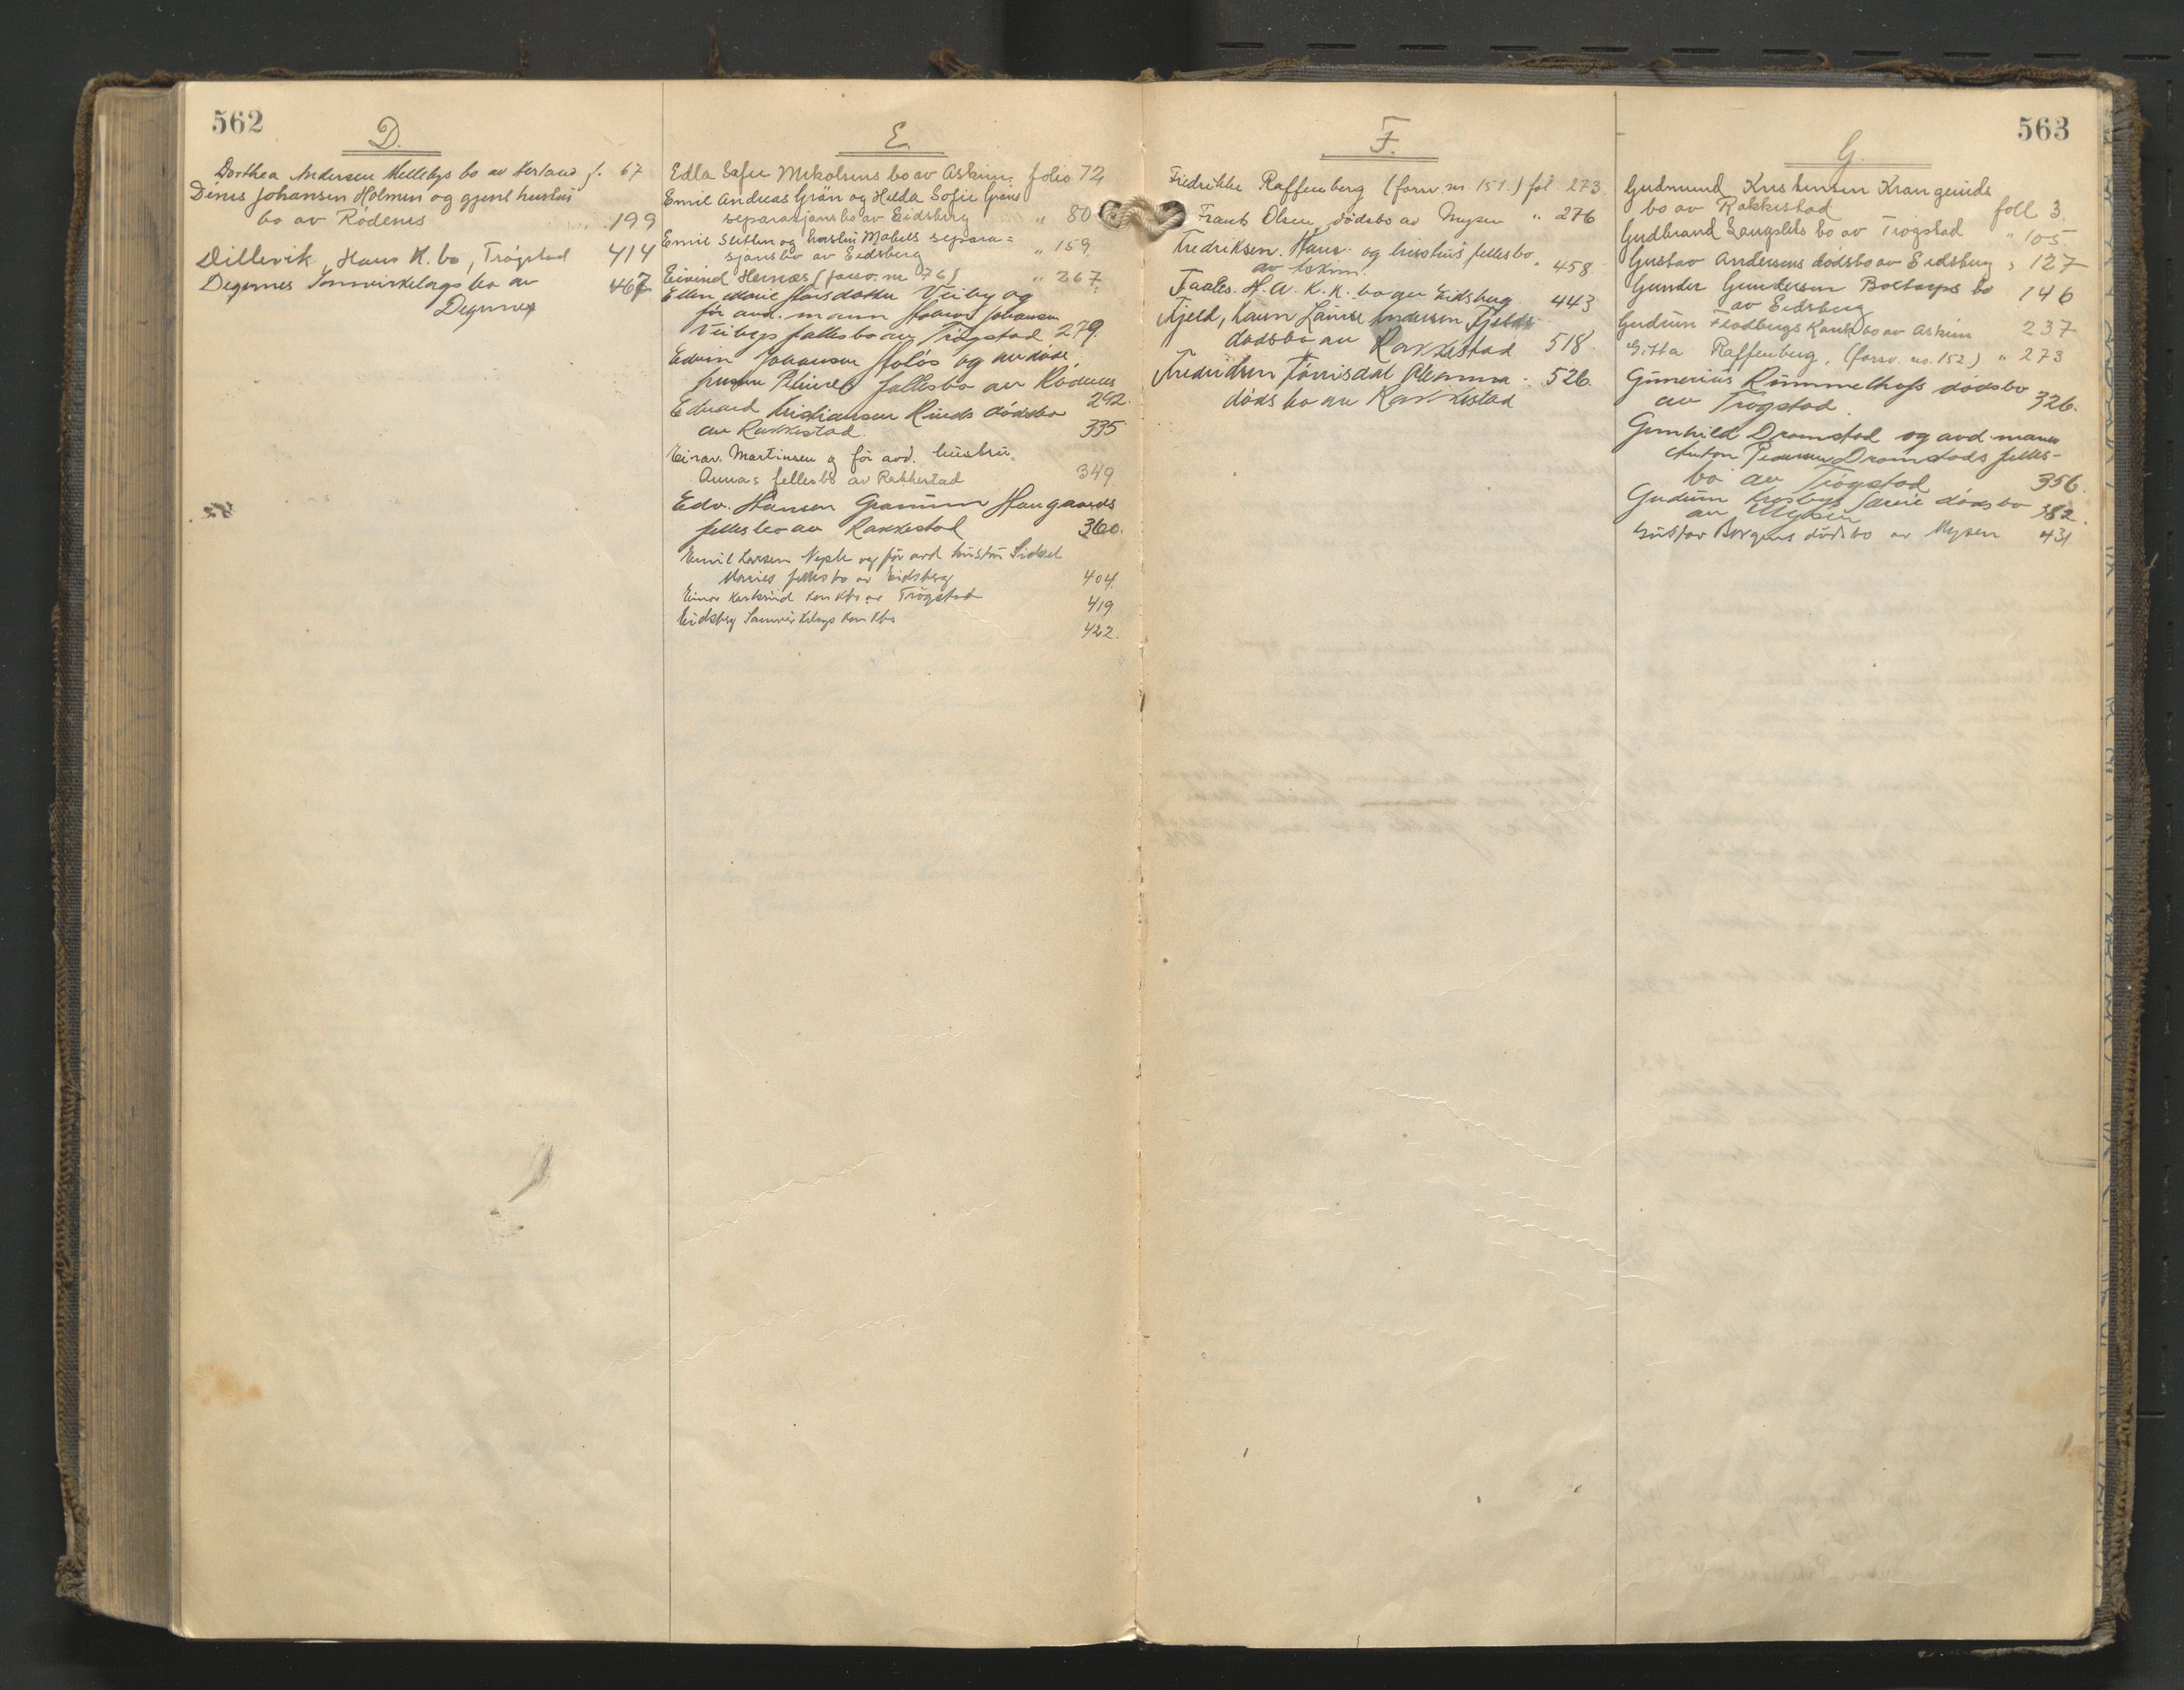 562
D.
Dorthea Andersen Mellebys bo av f. 67
Johansen Holmen og gjenl hustrus
bo av Rödenes " 199
Dillevik, Hans K. bo, Trögstad 414
Degernes Samvirkelags bo av 467
Degernes
E.
Edla Sofie bo av Askim folio 72
Emil Andreas Grän og Hilda Sofie Gräns
separasjonsbo av Eidsberg " 80
Emil og hustru Mabels separa=
sjonsbo av Eidsberg " 159
Eivind Hernæs (forsv. nr 76) " 267
Ellen Marie Hansdatter Veiby og
för avd. mann Johansen
Veibys fellesbo av Trögstad 279.
Edvin Johansen og avdöde
fellesbo av Rödenes
292.
Edvard Kristiansen dödsbo
av Rakkestad. 335
Einar Martinsen og för avd. hustru
Annas fellesbo av Rakkestad 349
Edv. Hansen Haugaards
fellesbo av Rakkestad 360.
Emil Larsen og för avd hustru Sidsel
Maries fellesbo av Eidsberg 404
Einar konkbo av Trögstad 419
Eidsberg Samvirkelags konkbo 422.
563
F.
Fredrikke Raffenberg (forsv. nr. 151.) fol. 273.
Frants Olsen dödsbo av Mysen " 276
Fredriksen. Hans og hustrus fellesbo
av Askim. " 458.
H. A. K. K. bo av Eidsberg 443
Fjeld, Karen Laurse Andersen Fjelds
dödsbo av Rakkestad 518.
526.
döds bo av Rakkestad
G.
Gudmund Kristensen
bo av Rakkestad foll 3.
Gudbrand bo av Trögstad " 105.
Gustav Andersens dödsbo av Eidsberg " 127
Gunder Gundersen bo 146
av Eidsberg
Gudrun Flodbergs konk bo av Askim 237
Gitta Raffenberg. (forsv. no. 152) " 273
Gunerius Rummelhoffs dödsbo
av Trögstad. 326.
Gunhild Dramstad og avd. mann
Anton Pedersen Dramstads felles-
bo av Trögstad 356.
Gudrun Krosbys dödsbo 382.
av Mysen
Gustav Borgens dödsbo av Mysen 431.